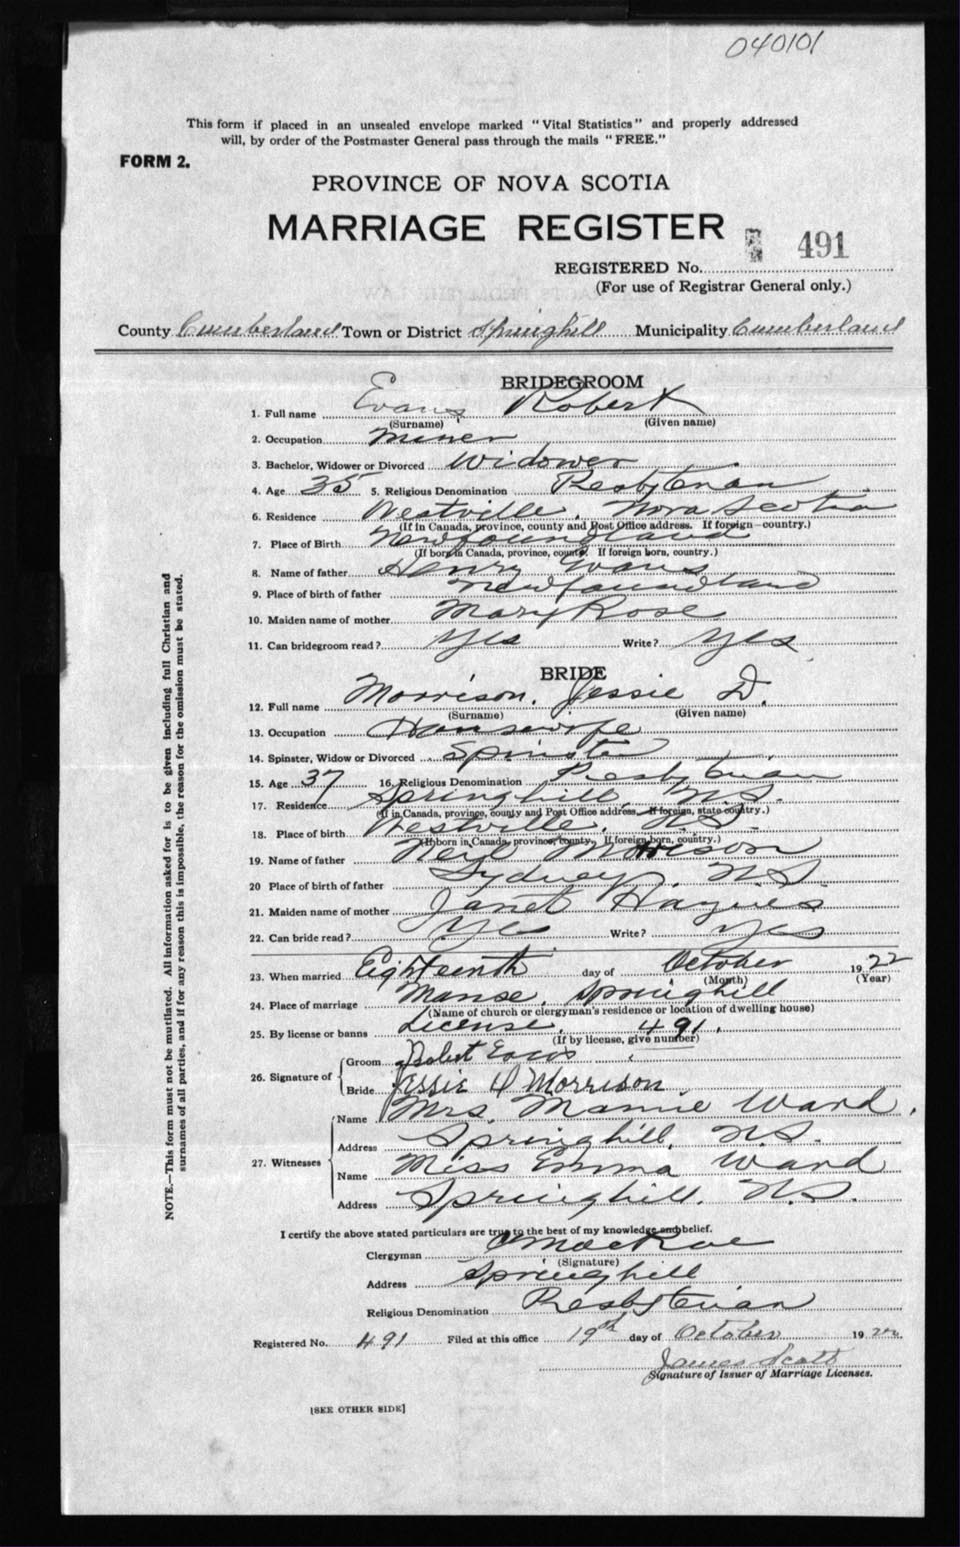 040101
This form if placed in an unsealed envelope marked "Vital Statistics" and properly addressed
will, by order of the Postmaster General pass through the mails "FREE."
FORM 2.
PROVINCE OF NOVA SCOTIA
MARRIAGE REGISTER
491
REGISTERED No.
(For use of Registrar General only.)
County Cumberland Town or District Springhill Municipality Cumberland
BRIDEGROOM
1. Full name Evans Robert
(Surname) (Given name)
2. Occupation Miner
3. Bachelor, Widower or Divorced Widower
4. Age 35 5. Religious Denomination Presbyterian
6. Residence Westville, Nova Scotia
(If in Canada, province, county and Post Office address. If foreign country.)
7. Place of Birth Newfoundland
(If born in Canada, province, county. If foreign born, country.)
8. Name of father Henry Evans
9. Place of birth of father Newfoundland
10. Maiden name of mother Mary Rose
11. Can bridegroom read? Yes Write? Yes
BRIDE
12. Full name Morrison, Jessie D.
(Surname) (Given name)
13. Occupation Housewife
14. Spinster, Widow or Divorced Spinster
15. Age 37 16. Religious Denomination Presbyterian
17. Residence Springhill, N.S.
(If in Canada, province, county and Post Office address. If foreign, state country.)
18. Place of birth Westville, N.S.
(If born in Canada, province, county. If foreign born, country.)
19. Name of father Neil Morrison
20 Place of birth of father Sydney, N.S.
21. Maiden name of mother Janet
22. Can bride read? Yes Write? Yes
23. When married Eighteenth day of October 1922
(Month) (Year)
24. Place of marriage Manse, Springhill
(Name of church or clergyman's residence or location of dwelling house)
25. By license or banns License, 491.
(If by license, give number)
26. Signature of Groom Robert Evans
Bride Jessie D Morrison
27. Witnesses Name Mrs. Mamie Ward,
Address Springhill, N.S.
Name Miss Emma Ward
Address Springhill, N.S.
I certify the above stated particulars are true to the best of my knowledge and belief.
Clergyman MacRae
(Signature)
Address Springhill
Religious Denomination Presbyterian
Registered No. 491 Filed at this office 19th day of October 1922.
James Scott
Signature of Issuer of Marriage Licenses.
[SEE OTHER SIDE]
NOTE.—This form must not be mutilated. All information asked for is to be given including full Christian and
surnames of all parties, and if for any reason this is impossible, the reason for the omission must be stated.